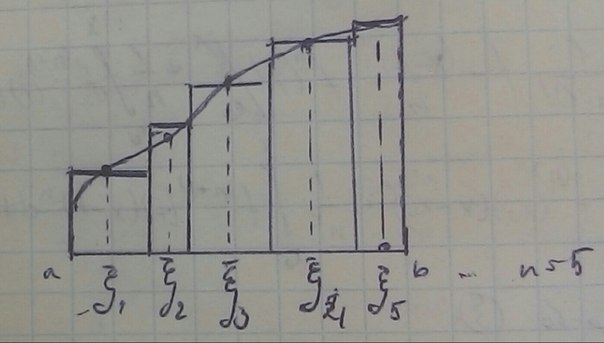 a ξ₁ ξ₂ ξ₃ ξ₄ ξ₅ b – n=5